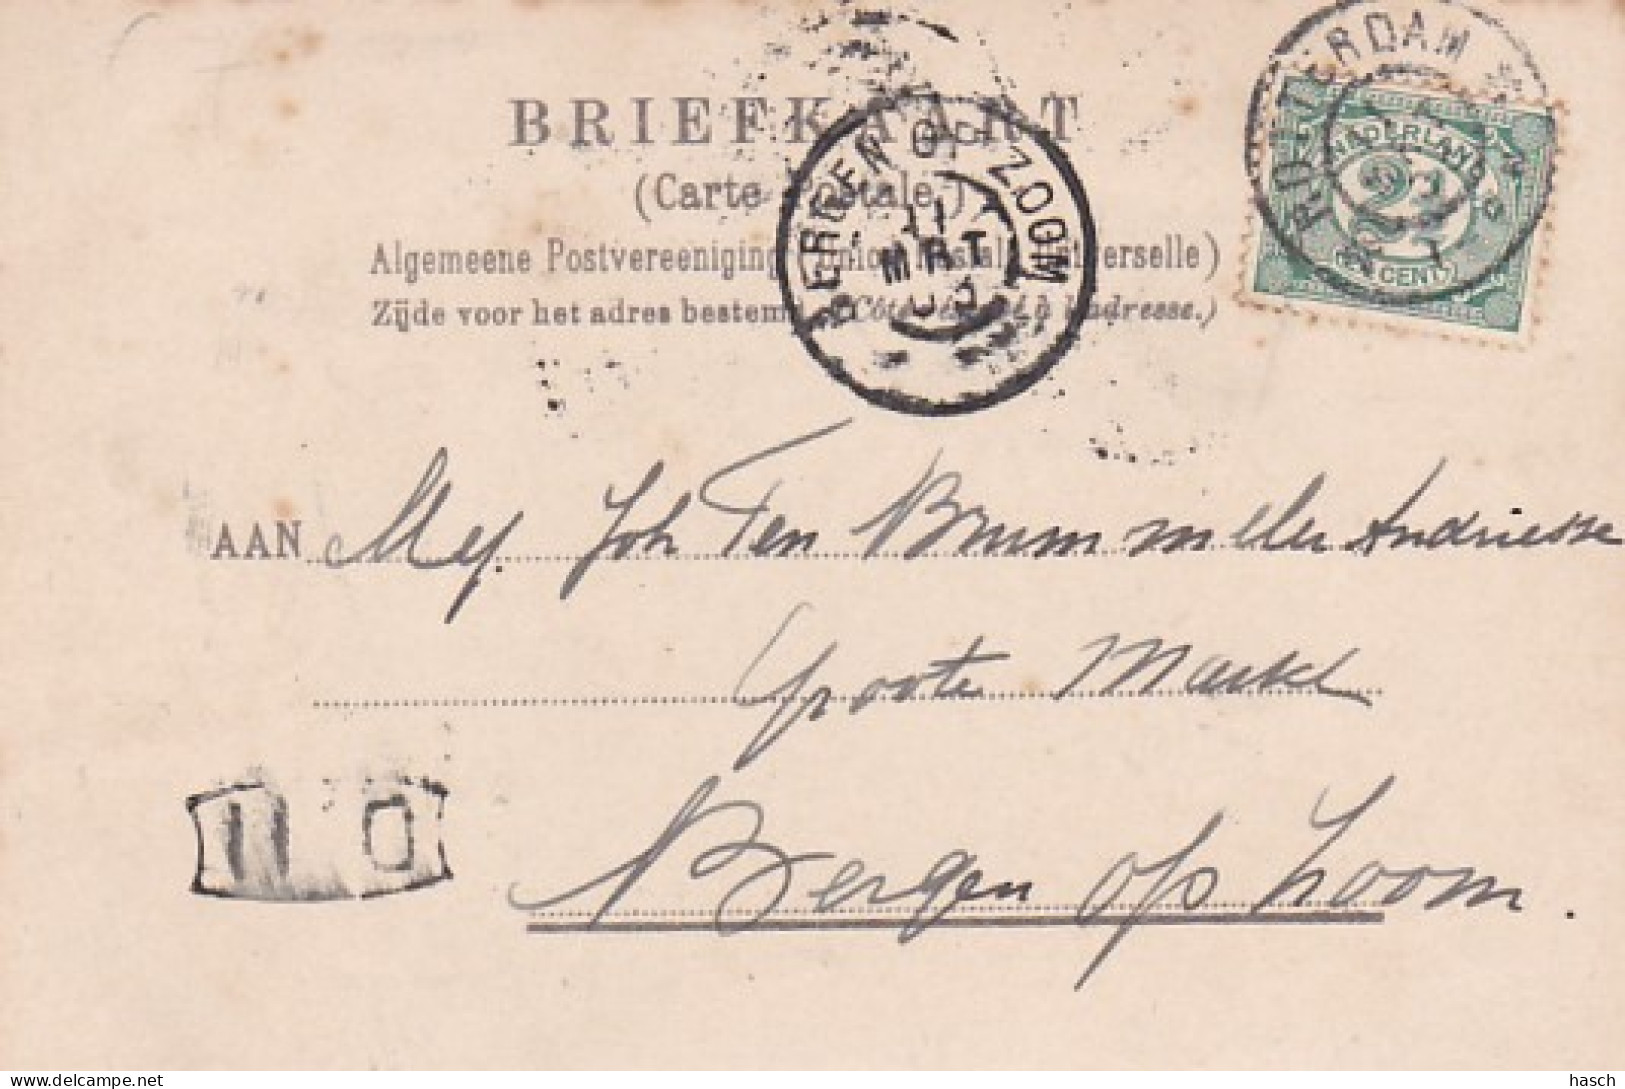 BRIEFKAART
(Carte Postale.)
Algemeene Postvereeniging (Union Postale Universelle)
Zijde voor het adres bestemd. (Côté réservé à l'adresse.)
ROTTERDAM
NEDERLAND
2½
CENT
BERGEN OP ZOOM
11
MRT
AAN Mej. Joh Ten Brummeler Andriesse
Groote Markt
Bergen op Zoom.
11 O
hasch
delcampe.net